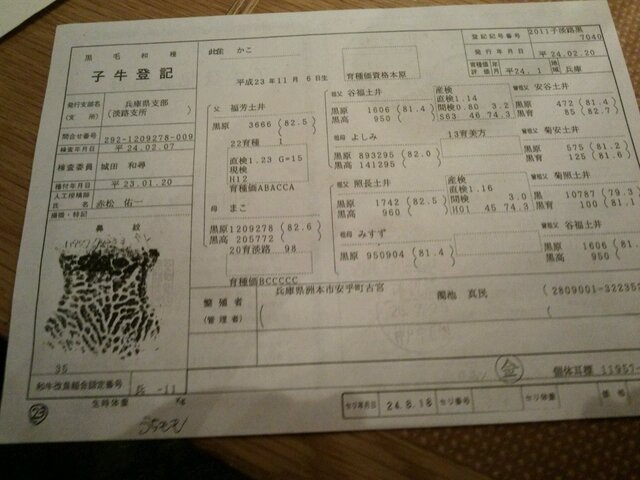 黒毛和種
子牛登記
登記記号番号 2011子淡路黒
7040
発行年月日 平24.02.20
育種価年
評価月 平24.1 地域 兵庫
かこ
平成23年11月 6日生
育種価資格本原
発行支部名
(支所) 兵庫県支部
(淡路支所)
問合せ番号 292-1209278-009
検査年月日 平24.02.07
検査委員 城田 和尋
種付年月日 平23.01.20
人工授精師
氏名 赤松 佑一
損徴・特記
鼻紋
35
父 福芳土井
黒原 3666 (82.5)
黒高
22育種 1
直検1.23 G=15
現検
H12
育種価ABACCA
母 まこ
黒原1209278 (82.6)
黒高 205772
20育淡路 98
育種価BCCCCC
祖父 谷福土井
黒原 1606 (81.4)
黒高 950
産検
直検1.14
間検0.80 3.2
S63 46 74.3
曽祖父 安谷土井
黒原 472 (81.4)
黒育 85 (82.7)
祖母 よしみ
13育美方
黒原 893295 (82.0)
黒高 141295
曽祖父 菊安土井
黒原 575 (81.2)
黒育 125 (81.6)
祖父 照長土井
黒原 1742 (82.5)
黒高 960
産検
直検1.16
間検 3.0
H01 45 74.3
曽祖父 菊照土井
黒原 10787 (79.3
黒育 100 (81.1
祖母 みすず
黒原 950904 (81.4)
黒高
曽祖父 谷福土井
黒原 1606 (81.
黒高 950
繁殖者
(管理者)
兵庫県洲本市安乎町古宮
真民
(2809001-322352
和牛改良組合認定番号 兵 -11
生時体重 Kg
個体耳標 11957-
セリ年月日 24.8.18 セリ番号 セリ体重 価格
23